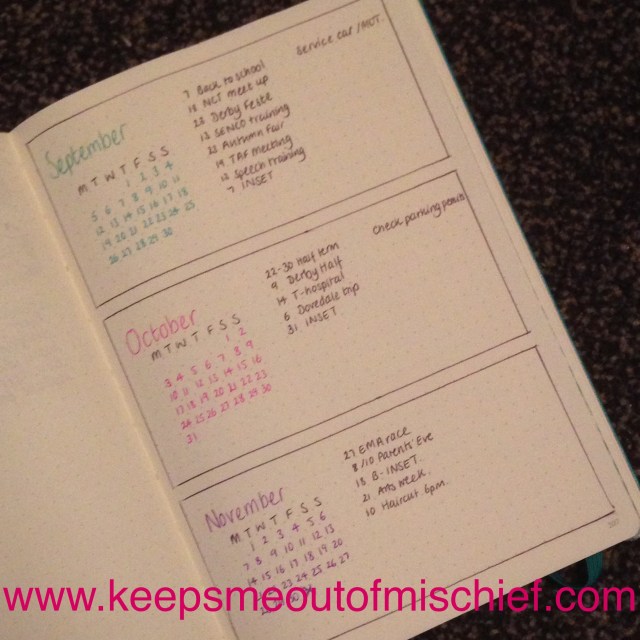 September
M T W T F S S
1 2 3 4
5 6 7 8 9 10 11
12 13 14 15 16 17 18
19 20 21 22 23 24 25
26 27 28 29 30
Service car / MOT.
7 Back to school
18 NCT meet up
25 Derby Feste
12 SENCO training
23 Autumn Fair
19 TAF meeting
12 Speech training
7 INSET
October
M T W T F S S
1 2
3 4 5 6 7 8 9
10 11 12 13 14 15 16
17 18 19 20 21 22 23
24 25 26 27 28 29 30
31
Check parking
22-30 Half term
9 Derby Half
14 T-hospital
6 Dovedale trip
31 INSET
November
M T W T F S S
1 2 3 4 5 6
7 8 9 10 11 12 13
14 15 16 17 18 19 20
23 24 25 26 27
27 EMA race
8/10 Parents' Eve
18 B-INSET
21 Arts week.
10 Haircut 6pm.
www.keepsmeoutofmischief.com